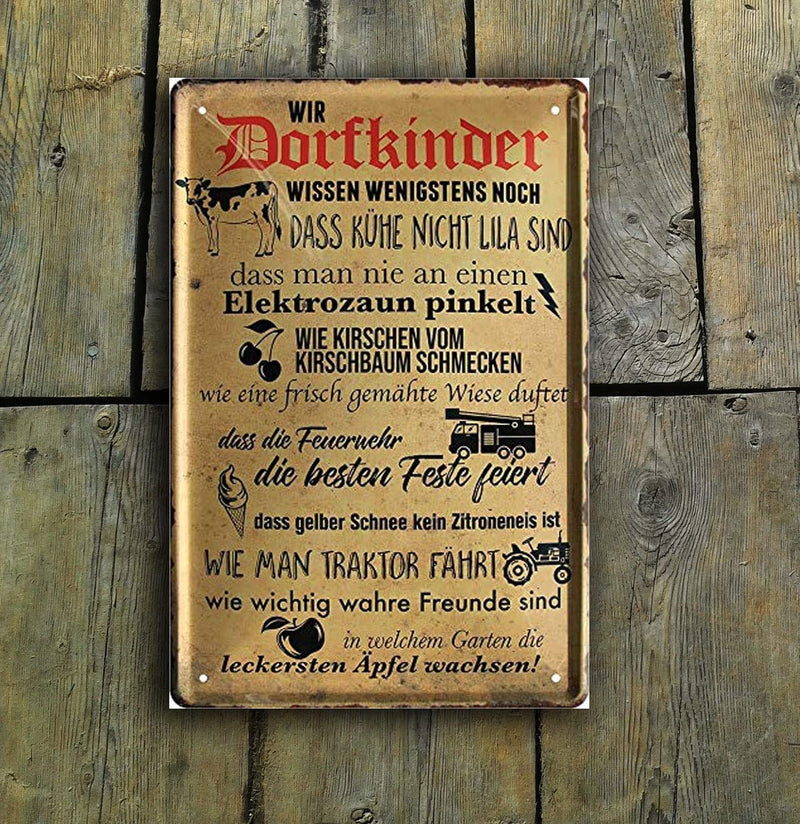 WIR
Dorfkinder
WISSEN WENIGSTENS NOCH
DASS KÜHE NICHT LILA SIND
dass man nie an einen
Elektrozaun pinkelt
WIE KIRSCHEN VOM
KIRSCHBAUM SCHMECKEN
wie eine frisch gemähte Wiese duftet
dass die Feuerwehr
die besten Feste feiert
dass gelber Schnee kein Zitroneneis ist
WIE MAN TRAKTOR FÄHRT
wie wichtig wahre Freunde sind
in welchem Garten die
leckersten Äpfel wachsen!